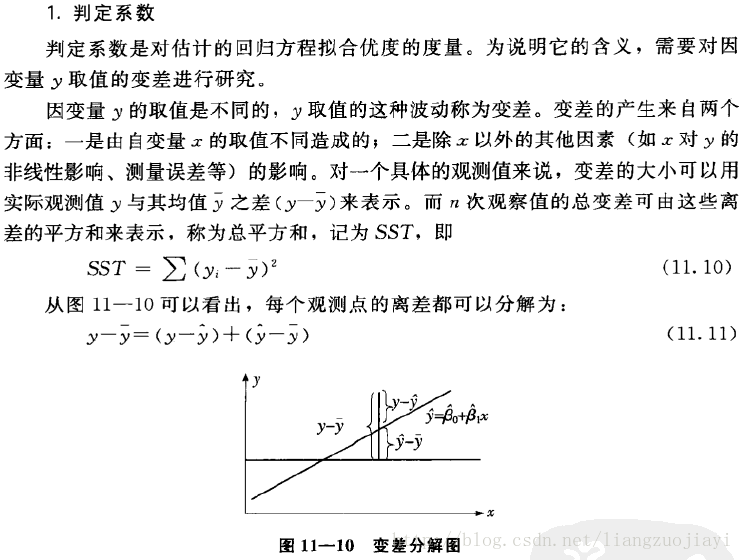 1. 判定系数
判定系数是对估计的回归方程拟合优度的度量。为说明它的含义，需要对因
变量 y 取值的变差进行研究。
因变量 y 的取值是不同的，y 取值的这种波动称为变差。变差的产生来自两个
方面：一是由自变量 x 的取值不同造成的；二是除 x 以外的其他因素（如 x 对 y 的
非线性影响、测量误差等）的影响。对一个具体的观测值来说，变差的大小可以用
实际观测值 y 与其均值 ȳ 之差(y—ȳ)来表示。而 n 次观察值的总变差可由这些离
差的平方和来表示，称为总平方和，记为 SST，即
SST = ∑(yᵢ－ȳ)² (11.10)
从图 11—10 可以看出，每个观测点的离差都可以分解为：
y－ȳ＝(y－ŷ)＋(ŷ－ȳ) (11.11)
y
y-ŷ
y-ȳ
ŷ=β̂₀+β̂₁x
ŷ-ȳ
x
图 11—10 变差分解图
http://blog.csdn.net/liangzuojiayi